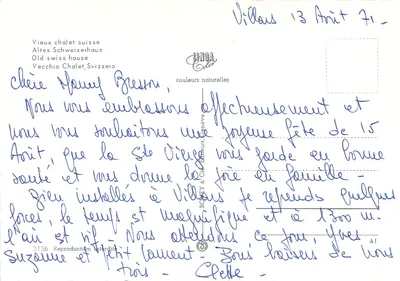 Villars 13 Août 71 -
Vieux chalet suisse
Altes Schweizerhaus
Old swiss house
Vecchio Chalet, Svizzero
couleurs naturelles
Chère Mamy Bresson,
Nous vous embrassons affectueusement et
nous vous souhaitons une joyeuse fête de 15
Août, que la Ste Vierge vous garde en bonne
santé et vous donne la joie en famille -
Bien installés à Villars, je reprends quelques
forces, le temps est magnifique et à 1300 m.
l'air est vif - Nous attendons ce jour, Yves
Suzanne et Petit Laurent - Bons baisers de nous
trois -
2136 Reproduction interdite
A I